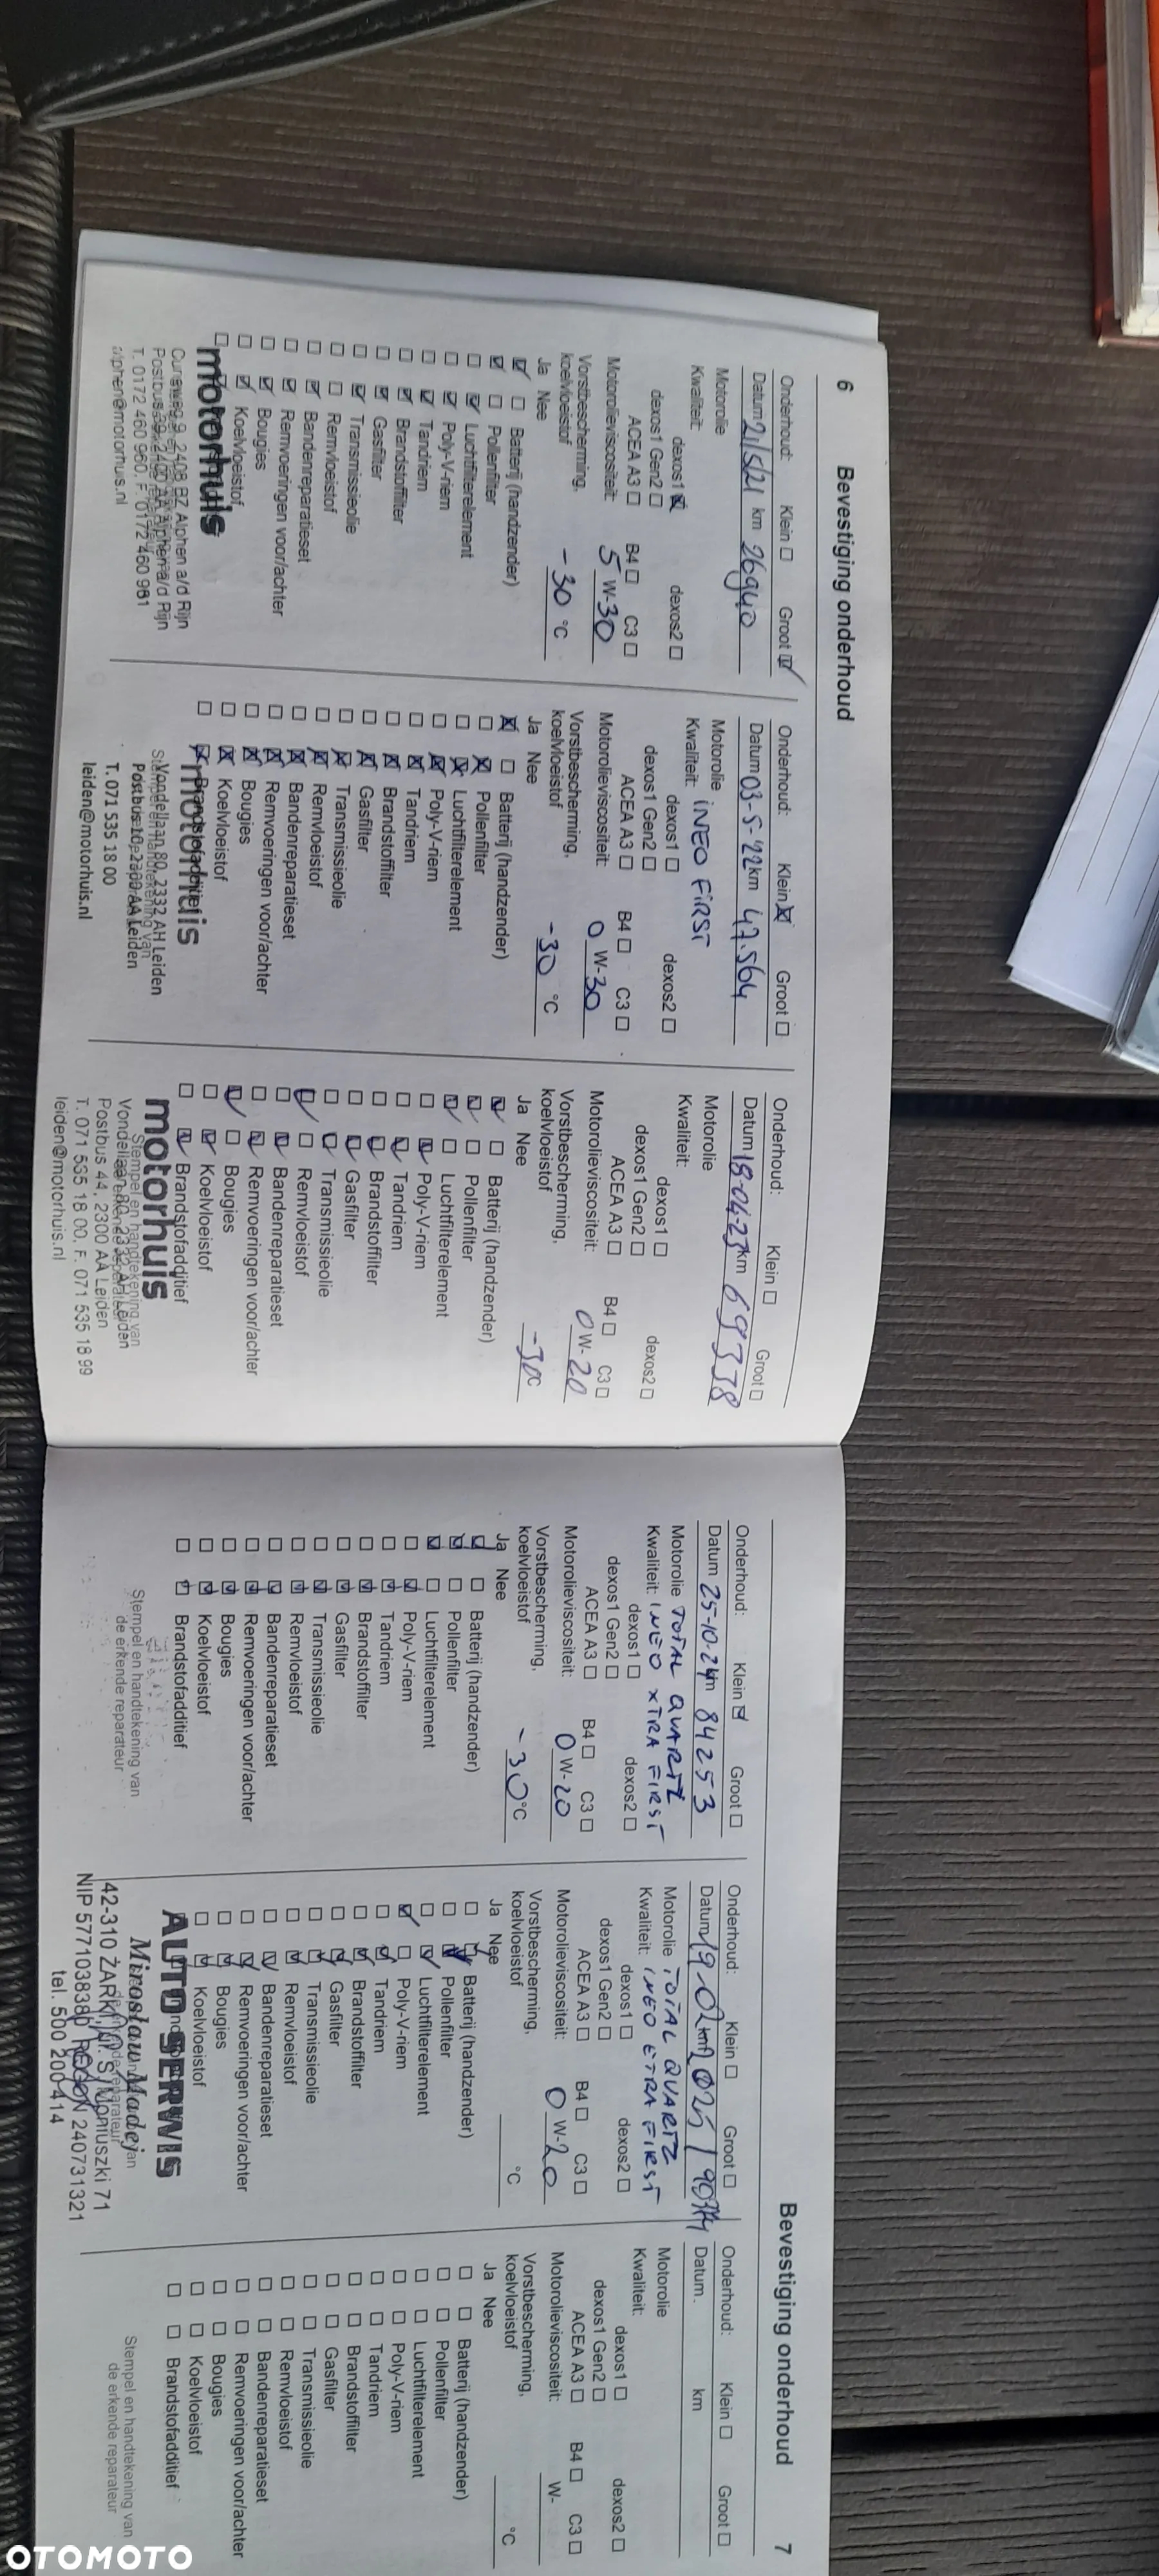 6 Bevestiging onderhoud
Onderhoud: Klein Groot
Datum 21/5/21 km 26940
Motorolie
Kwaliteit:
dexos1 dexos2
dexos1 Gen2
ACEA A3 B4 C3
Motorolieviscositeit: 5 W-30
Vorstbescherming,
koelvloeistof -30 °C
Ja Nee
Batterij (handzender)
Pollenfilter
Luchtfilterelement
Poly-V-riem
Tandriem
Brandstoffilter
Gasfilter
Transmissieolie
Remvloeistof
Bandenreparatieset
Remvoeringen voor/achter
Bougies
Koelvloeistof
motorhuis
Curieweg 9, 2408 BZ Alphen a/d Rijn
T. 0172 460 960, F. 0172 460 961
alphen@motorhuis.nl
Onderhoud: Klein Groot
Datum 03-5-22 km 47.564
Motorolie
Kwaliteit: iNEO FiRST
dexos1 dexos2
dexos1 Gen2
ACEA A3 B4 C3
Motorolieviscositeit: 0 W-30
Vorstbescherming,
koelvloeistof -30 °C
Ja Nee
Batterij (handzender)
Pollenfilter
Luchtfilterelement
Poly-V-riem
Tandriem
Brandstoffilter
Gasfilter
Transmissieolie
Remvloeistof
Bandenreparatieset
Remvoeringen voor/achter
Bougies
Koelvloeistof
Brandstofadditief
motorhuis
Vondellaan 80, 2332 AH Leiden
T. 071 535 18 00
leiden@motorhuis.nl
Onderhoud: Klein Groot
Datum 18-04-23 km 69338
Motorolie
Kwaliteit:
dexos1 dexos2
dexos1 Gen2
ACEA A3 B4 C3
Motorolieviscositeit: 0 W-20
Vorstbescherming,
koelvloeistof -30 °C
Ja Nee
Batterij (handzender)
Pollenfilter
Luchtfilterelement
Poly-V-riem
Tandriem
Brandstoffilter
Gasfilter
Transmissieolie
Remvloeistof
Bandenreparatieset
Remvoeringen voor/achter
Bougies
Koelvloeistof
Brandstofadditief
Stempel en handtekening van
motorhuis
Vondellaan 80, 2332 AH Leiden
Postbus 44, 2300 AA Leiden
T. 071 535 18 00, F. 071 535 18 99
leiden@motorhuis.nl
Bevestiging onderhoud 7
Onderhoud: Klein Groot
Datum 25-10-24 km 84253
Motorolie TOTAL QUARTZ
Kwaliteit: iNEO XTRA FIRST
dexos1 dexos2
dexos1 Gen2
ACEA A3 B4 C3
Motorolieviscositeit: 0 W-20
Vorstbescherming,
koelvloeistof -30 °C
Ja Nee
Batterij (handzender)
Pollenfilter
Luchtfilterelement
Poly-V-riem
Tandriem
Brandstoffilter
Gasfilter
Transmissieolie
Remvloeistof
Bandenreparatieset
Remvoeringen voor/achter
Bougies
Koelvloeistof
Brandstofadditief
Stempel en handtekening van
de erkende reparateur
Onderhoud: Klein Groot
Datum 19.02 km
Motorolie TOTAL QUARTZ
Kwaliteit: iNEO ETRA FIRST
dexos1 dexos2
dexos1 Gen2
ACEA A3 B4 C3
Motorolieviscositeit: 0 W-20
Vorstbescherming,
koelvloeistof °C
Ja Nee
Batterij (handzender)
Pollenfilter
Luchtfilterelement
Poly-V-riem
Tandriem
Brandstoffilter
Gasfilter
Transmissieolie
Remvloeistof
Bandenreparatieset
Remvoeringen voor/achter
Bougies
Koelvloeistof
AUTO SERWIS
Mirosław Madej
42-310 ŻARKI, ul. S. Moniuszki 71
NIP 5771038380 REGON 240731321
tel. 500 200 414
Onderhoud: Klein Groot
Datum km
Motorolie
Kwaliteit:
dexos1 dexos2
dexos1 Gen2
ACEA A3 B4 C3
Motorolieviscositeit: W-
Vorstbescherming,
koelvloeistof °C
Ja Nee
Batterij (handzender)
Pollenfilter
Luchtfilterelement
Poly-V-riem
Tandriem
Brandstoffilter
Gasfilter
Transmissieolie
Remvloeistof
Bandenreparatieset
Remvoeringen voor/achter
Bougies
Koelvloeistof
Brandstofadditief
Stempel en handtekening van
de erkende reparateur
OTOMOTO